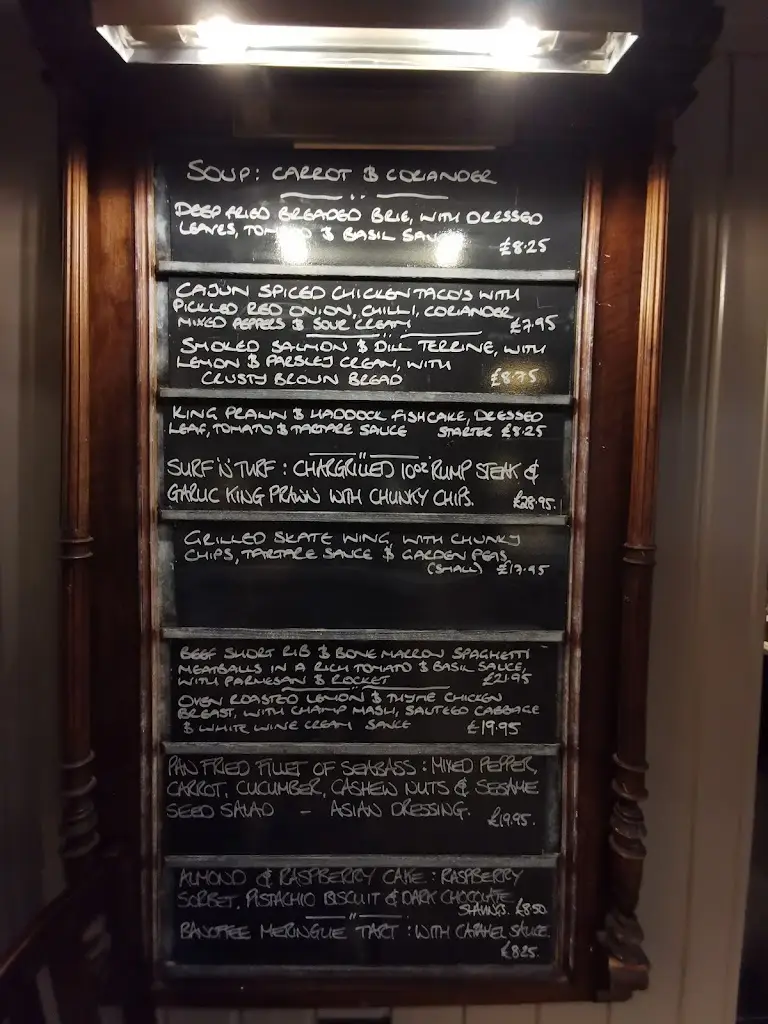 SOUP: CARROT & CORIANDER
DEEP FRIED BREADED BRIE, WITH DRESSED
LEAVES, TOMATO & BASIL SAUCE
£8.25
CAJUN SPICED CHICKEN TACO'S WITH
PICKLED RED ONION, CHILLI, CORIANDER,
MIXED PEPPERS & SOUR CREAM £7.95
SMOKED SALMON & DILL TERRINE, WITH
LEMON & PARSLEY CREAM, WITH
CRUSTY BROWN BREAD £8.75
KING PRAWN & HADDOCK FISHCAKE, DRESSED
LEAF, TOMATO & TARTARE SAUCE STARTER £8.25
SURF 'N' TURF : CHARGRILLED 10oz RUMP STEAK &
GARLIC KING PRAWN WITH CHUNKY CHIPS. £28.95.
GRILLED SKATE WING, WITH CHUNKY
CHIPS, TARTARE SAUCE & GARDEN PEAS
(SMALL) £17.95
BEEF SHORT RIB & BONE MARROW SPAGHETTI
MEATBALLS IN A RICH TOMATO & BASIL SAUCE,
WITH PARMESAN & ROCKET £21.95
OVEN ROASTED LEMON & THYME CHICKEN
BREAST, WITH CHAMP MASH, SAUTEED CABBAGE
& WHITE WINE CREAM SAUCE £19.95
PAN FRIED FILLET OF SEABASS : MIXED PEPPER,
CARROT, CUCUMBER, CASHEW NUTS & SESAME
SEED SALAD - ASIAN DRESSING. £19.95.
ALMOND & RASPBERRY CAKE : RASPBERRY
SORBET, PISTACHIO BISCUIT & DARK CHOCOLATE
SHAVINGS. £8.50.
BANOFFEE MERINGUE TART : WITH CARAMEL SAUCE
£8.25.